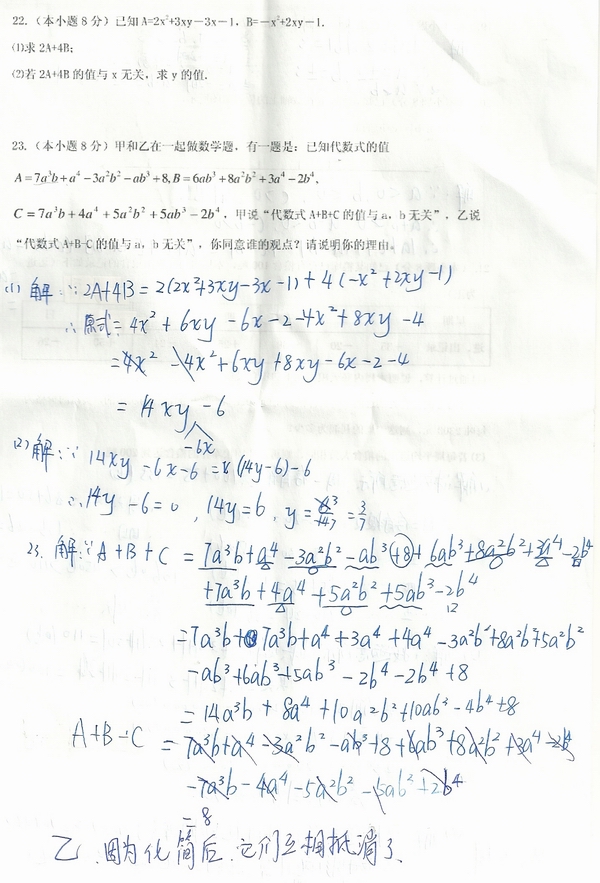 22.（本小题8分）已知A=2x²+3xy-3x-1，B=-x²+2xy-1.
(1)求2A+4B；
(2)若2A+4B的值与x无关，求y的值.
23.（本小题8分）甲和乙在一起做数学题，有一题是：已知代数式的值
A=7a³b+a⁴-3a²b²-ab³+8, B=6ab³+8a²b²+3a⁴-2b⁴、
C=7a³b+4a⁴+5a²b²+5ab³-2b⁴，甲说“代数式A+B+C的值与a，b无关”，乙说
“代数式A+B-C的值与a，b无关”，你同意谁的观点？请说明你的理由。
(1) 解：∵2A+4B=2(2x²+3xy-3x-1)+4(-x²+2xy-1)
∴原式=4x²+6xy-6x-2-4x²+8xy-4
=4x²-4x²+6xy+8xy-6x-2-4
=14xy-6
-6x
(2) 解：∵14xy-6x-6=x(14y-6)-6
∴14y-6=0，14y=6，y=6/14=3/7
23. 解：∵A+B+C=7a³b+a⁴-3a²b²-ab³+8+6ab³+8a²b²+3a⁴-2b⁴
+7a³b+4a⁴+5a²b²+5ab³-2b⁴
=7a³b+7a³b+a⁴+3a⁴+4a⁴-3a²b²+8a²b²+5a²b²
-ab³+6ab³+5ab³-2b⁴-2b⁴+8
=14a³b+8a⁴+10a²b²+10ab³-4b⁴+8
A+B-C=7a³b+a⁴-3a²b²-ab³+8+6ab³+8a²b²+3a⁴-2b⁴
-7a³b-4a⁴-5a²b²-5ab²+2b⁴
=8
乙、因为化简后、它们互相抵消了、